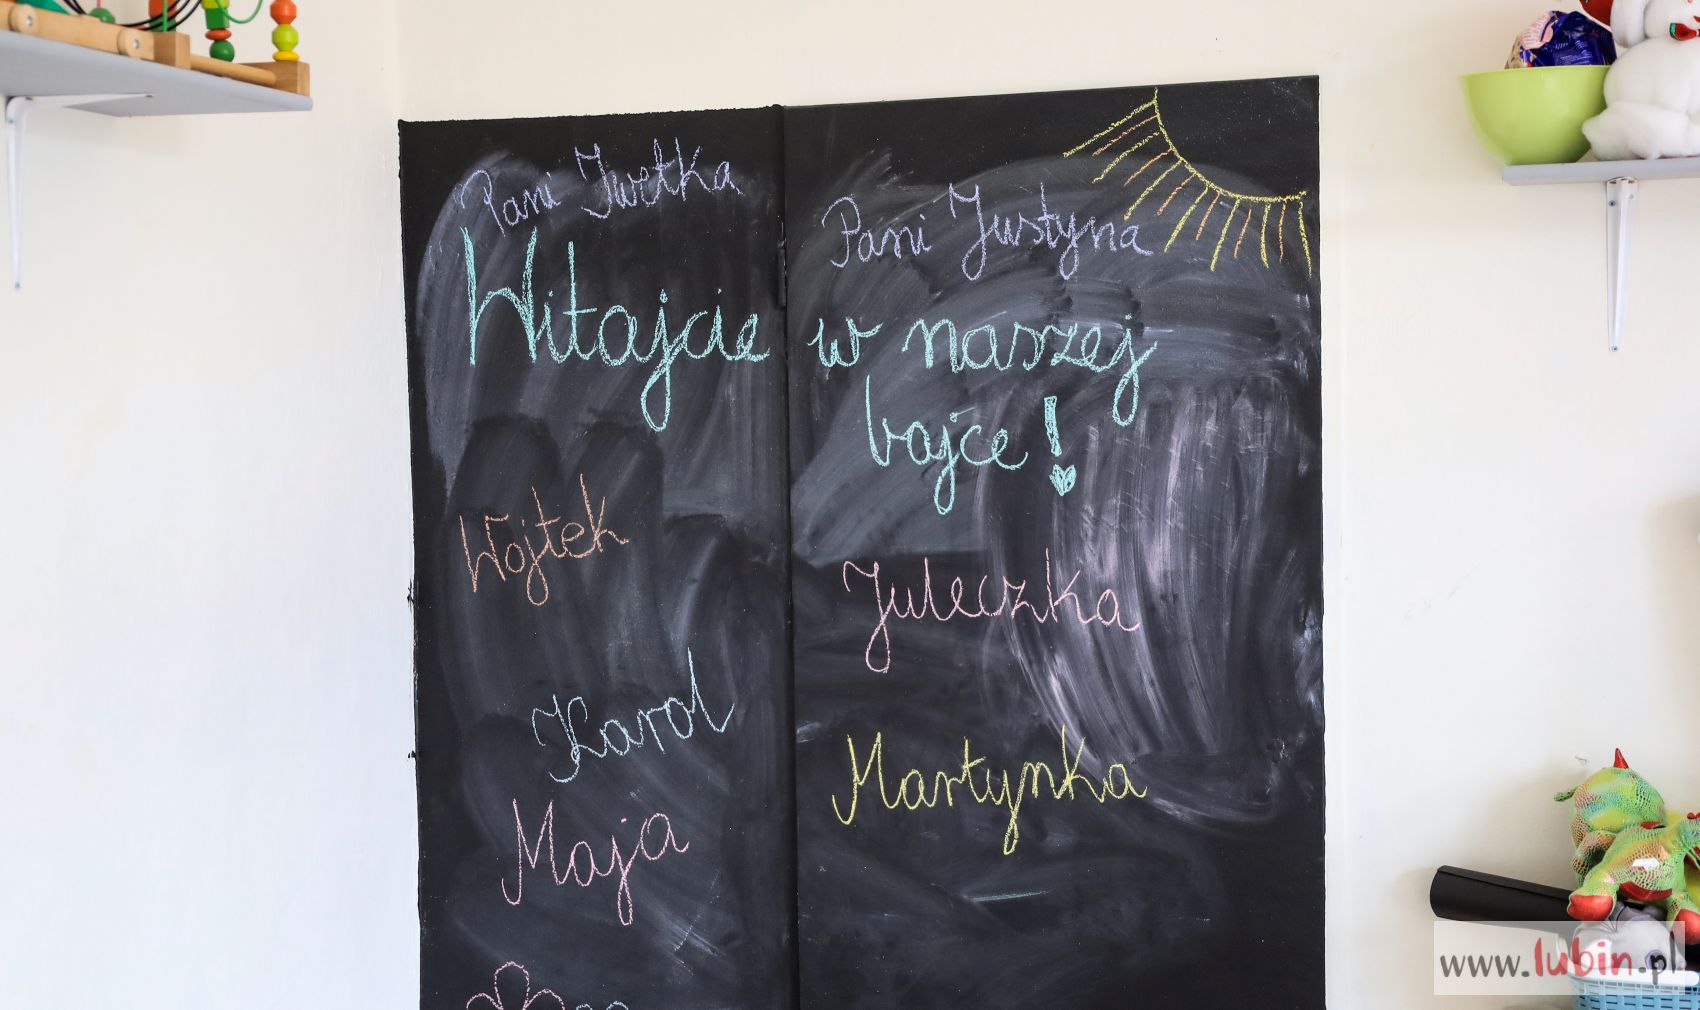 Pani Iwetka
Pani Justyna
Witajcie w naszej
bajce!
Wojtek
Juleczka
Karol
Martynka
Maja
www.lubin.pl